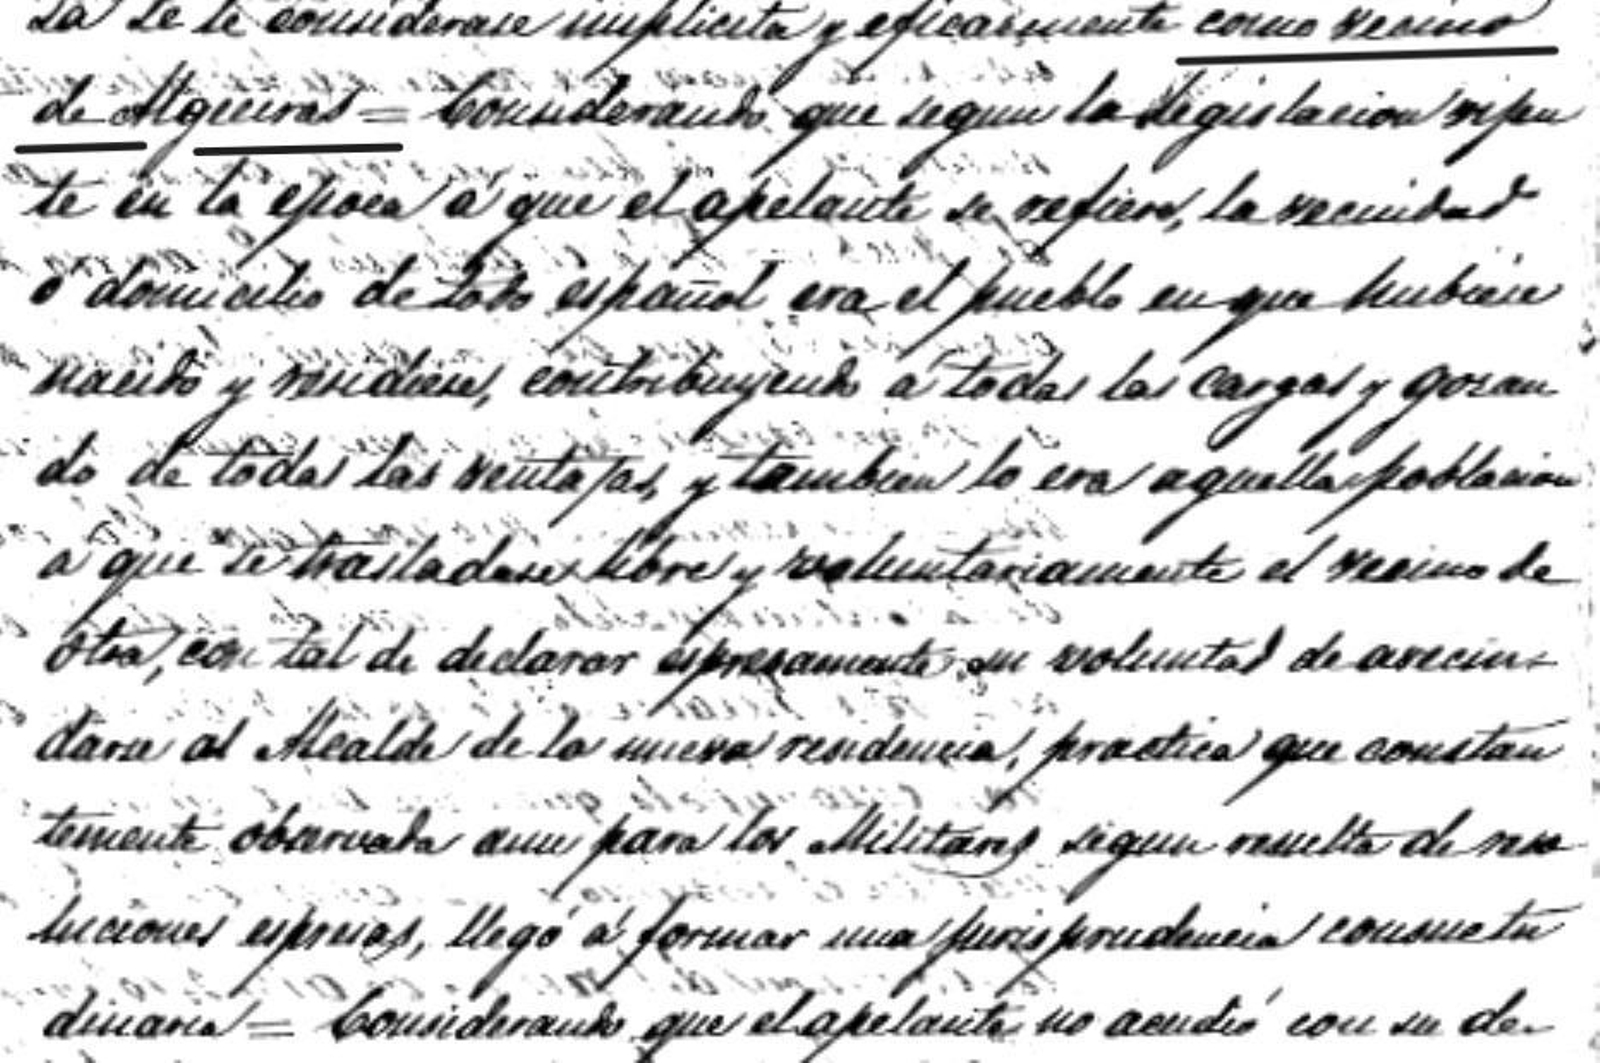 za se le considerase implicita y eficazmente como vecino
de Algeciras = Considerando que segun la Legislacion vijen
te en la epoca á que el apelante se refiere, la vecindad
ó domicilio de todo español era el pueblo en que hubiese
nacido y residiese, contribuyendo á todas las cargas y gozan
do de todas las ventajas, y tambien lo era aquella poblacion
a que se trasladase libre y voluntariamente el vecino de
otra, con tal de declarar espresamente su voluntad de avecin-
darse al Alcalde de la nueva residencia, practica que constan
temente observada aun para los Militares segun resulta de reso
luciones espresas, llegó á formar una jurisprudencia consuetu
dinaria = Considerando que el apelante no acudió con su de-